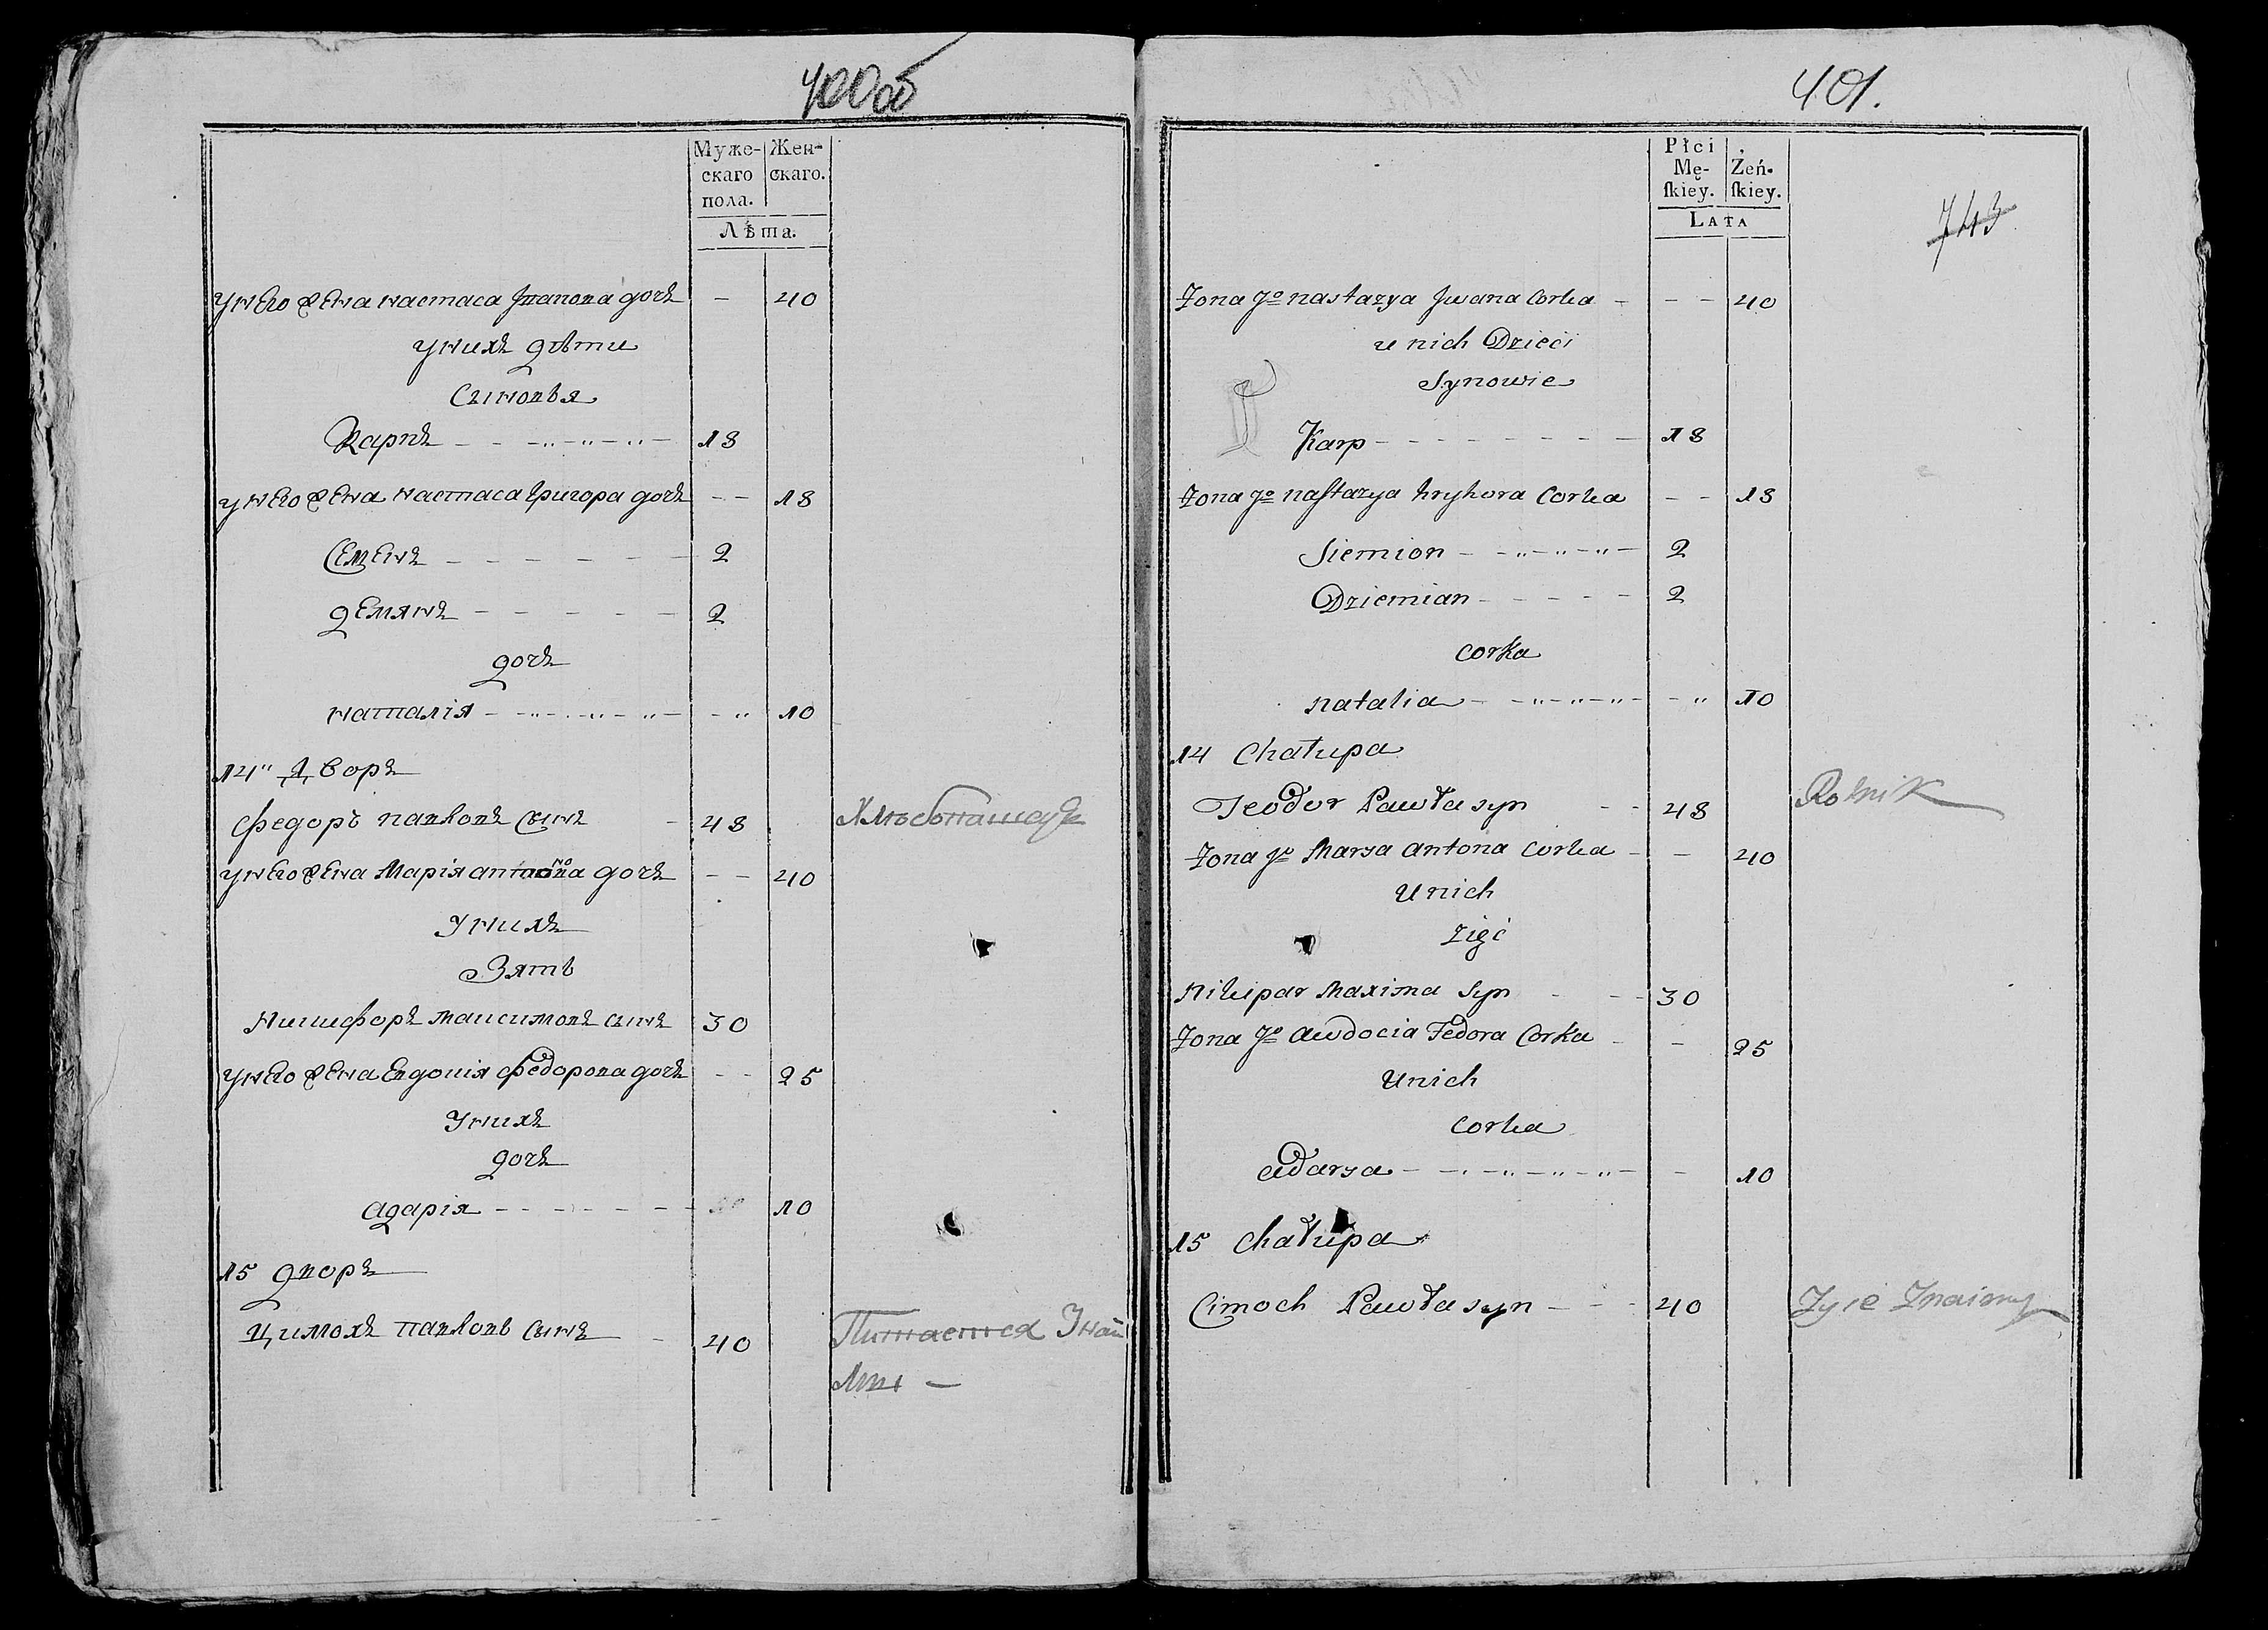 400об
Муже-
скаго
пола.
Жен-
скаго.
Лѣта.
унего жена настаса Іванова дочъ - 40
унихъ дѣти
Сыновья
Карпъ 18
унего жена настаса григора дочъ - - 18
Семенъ 2
демянъ 2
дочъ
наталія - 10
14" Дворъ
Федоръ павловъ сынъ 48 Хлѣбопашецъ
унего жена Марія антонова дочъ - - 40
Унихъ
Зять
Никифоръ максимовъ сынъ 30
унего жена Евдокія федорова дочъ - - 25
Унихъ
дочъ
адарія 10
15 дворъ
Цимохъ павловъ сынъ 40 Питается
401.
Płci
Mę-
ſkiey.
Żeń-
ſkiey.
Lata
743
Żona jo nastazya Jwana Corka - - - 40
u nich Dzieci
Synowie
Karp 18
Żona jo naſtazya hryhora Corka - - 18
Siemion 2
Dziemian 2
corka
natalia - 10
14 Chałupa
Teodor Pawła syn 48 Rolnik
Żona jo Marya antona Corka - - 40
Unich
zięć
Nikipar Maxima Syn 30
Żona jo Awdocia Fedora Corka - - 25
Unich
corka
adarya - 10
15 Chałupa
Cimoch Pawła syn 40 Żyie Znaiomy